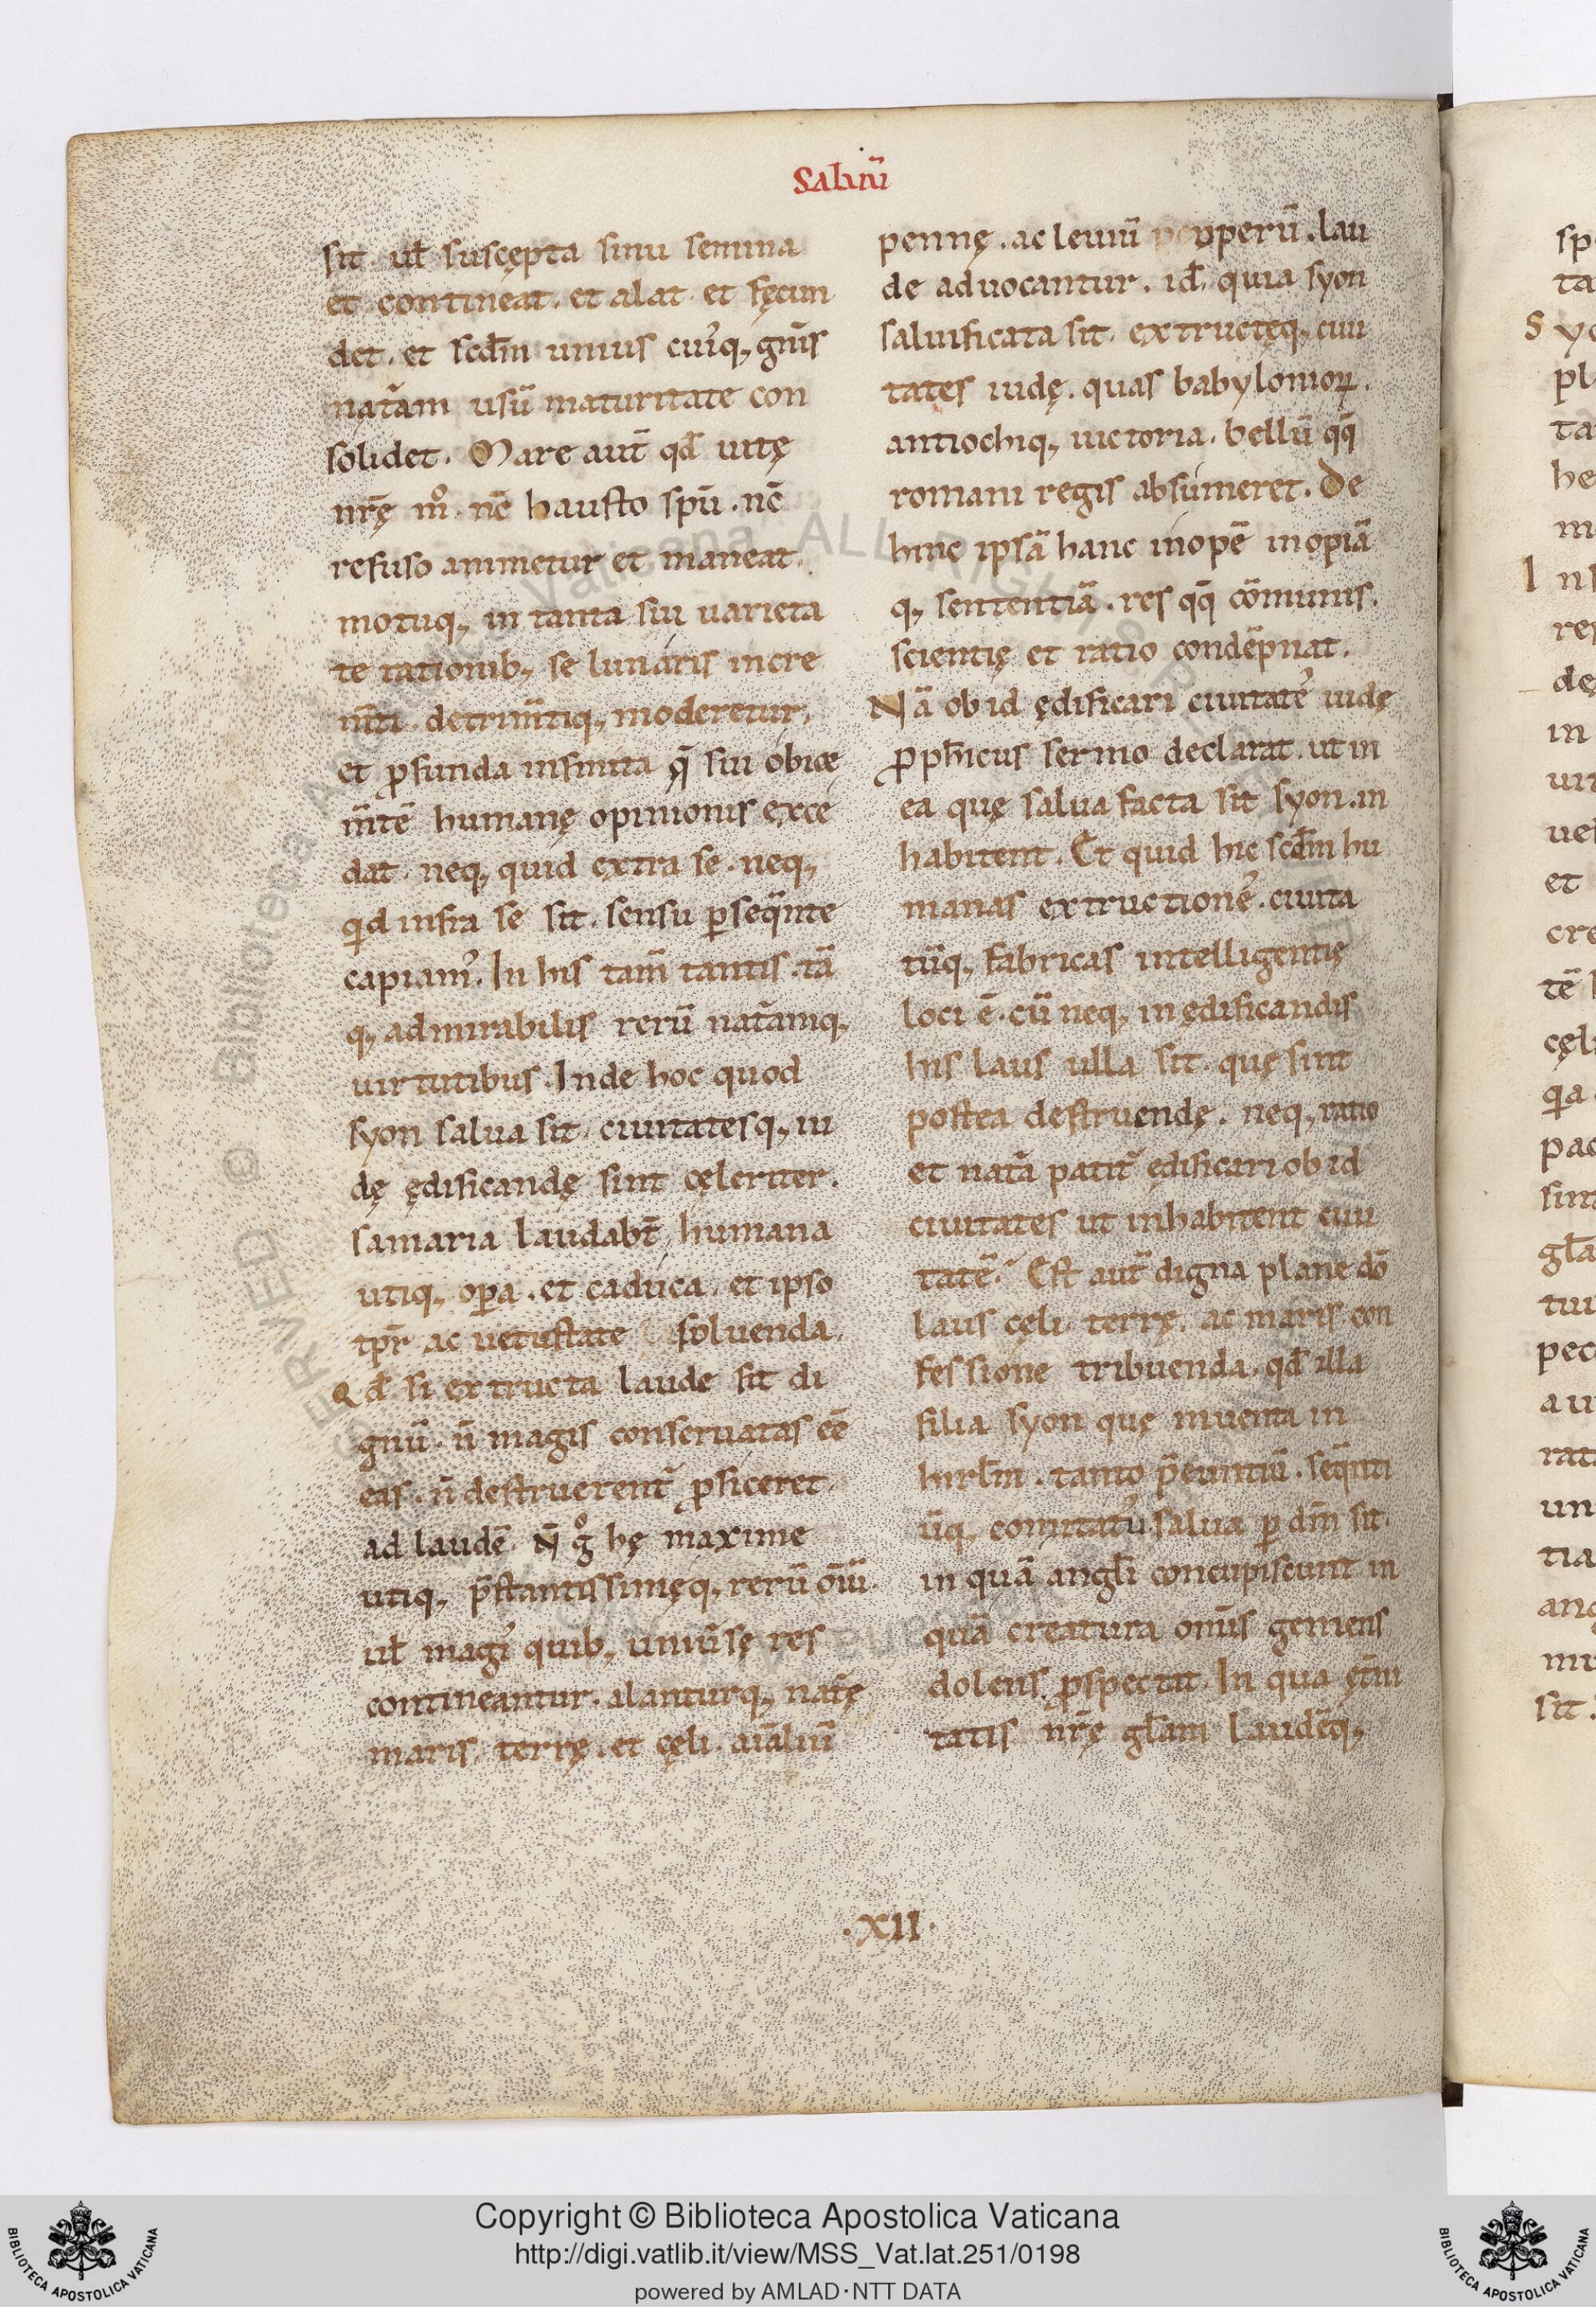 Saluū
sit. uł suscępta sinu semina
et contineat. et alat. et fęcun
det. et scd̄m unius cui'q; gn̄is
nat̄am usū maturitate con
solidet. Mare aut̄ qđ uitę
nr̄ę m̊. nc̄ hausto spū. nc̄
refuso animetur et maneat.
motuq; in tanta sui uarieta
te rationib; se lunaris incre
m̄ti. detrim̄tiq; moderetur.
et ꝓfunda infinita q̄ sui obice
m̄te humanę opinionis exce
dat. neq; quid extra se. neq;
qid infra se sit. sensu ꝑseq̄nte
capiam'. In his tam̄ tantis. tā
q; admirabilis rerū nat̄amq;
uirtutibus. Inde hoc quod
syon salua sit. ciuitatesq; iu
dę ędificandę sint cęleriter.
samaria laudabt̄. humana
utiq; oꝑa. et caduca. et ipso
tpr̄ ac uetustate soluenda.
Qđ si extructa laude sit di
gnū. n̄ magis conseruatas eē
eas. n̄ destruerent̄ ꝓficeret
ad laudē. N̄ g̊ hę maxime
utiq; p̄stantissimęq; rerū om̄iū.
uł magi' quib; uniu'sę res
contineantur. alanturq; nat̄ę
maris. terrę. et cęli. aīaliū
pennę. ac leuiū peruperū. lau
de aduocantur. id̄. quia syon
saluificata sit. extructęq; ciui
tates iudę. quas babylonioꝝ.
antiochiq; uictoria. bellū qq̄
romani regis absumeret. De
hinc ipsā hanc inopē inopiā
q; sententiā. res qq̄ cōmunis.
scientię et ratio condēpnat.
Nā ob id ędificari ciuitate' iudę
ꝓpħicus sermo declarat. ut in
ea quę salua facta sit syon. in
habitent. Et quid hic scd̄m hu
manas extructione'. ciuita
tūq; fabricas intelligentię
loci ē. cū neq; in ędificandis
his laus ulla sit. quę sint
postea destruendę. neq; ratio
et nat̄a patit̄ ędificari ob id
ciuitates ut inhabitent ciui
tatē. Est aut̄ digna plane dō
laus cęli. terrę. ac maris. con
fessione tribuenda. qđ illa
filia syon quę inuenta in
hirłm. tanto p̄euntiū. seq̄nti
ūq; comitatu' salua ꝑ dm̄ sit.
in quā angłi concupiscunt in
quā creatura omīs gemens
dolens ꝓspectat. In qua ęt̄ni
tatis nr̄ę głam laudēq;
.XII.
Copyright © Biblioteca Apostolica Vaticana
http://digi.vatlib.it/view/MSS_Vat.lat.251/0198
powered by AMLAD·NTT DATA